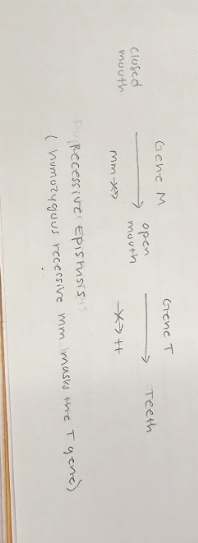 Gene M Gene T
closed mouth → open mouth → Teeth
mm -x> -x> tt
Recessive Epistasis:
(homozygous recessive mm masks the T gene)